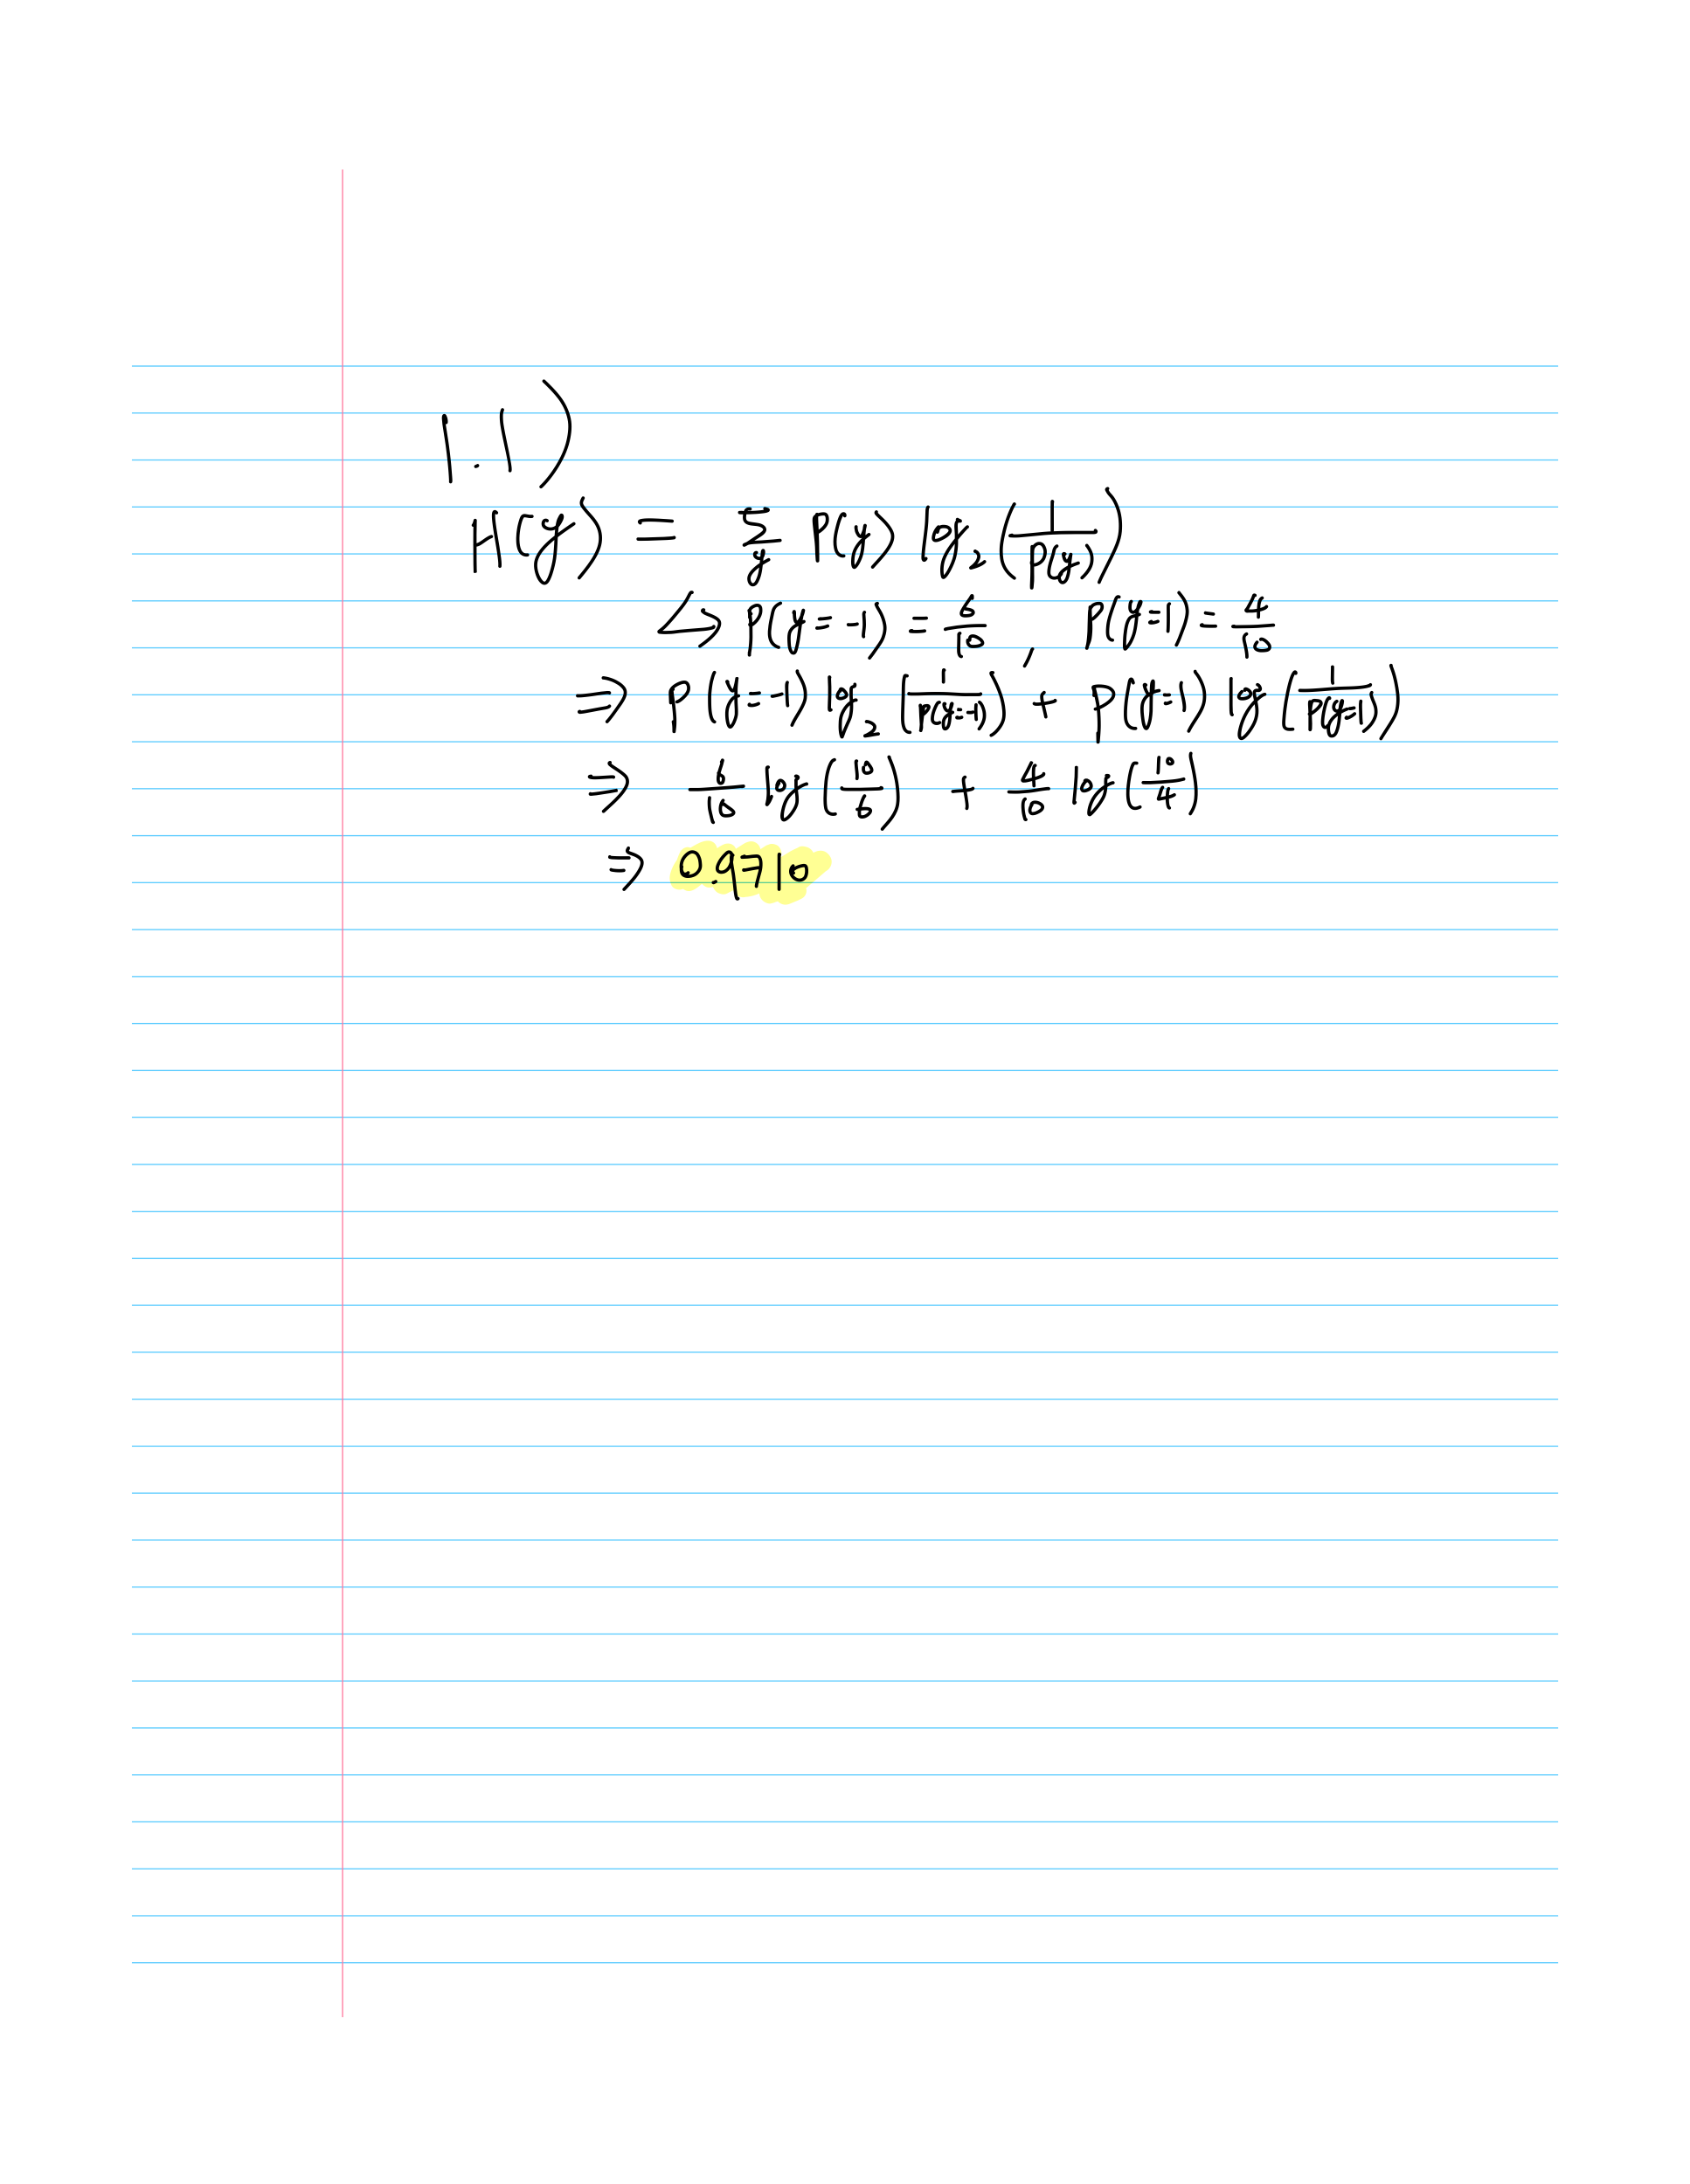 1.1)
H(y) = Σ_y P(y) log₂(1/P(y))
↳ P(y=-1) = 6/10, P(y=1) = 4/10
⇒ P(y=-1) log₂(1/P(y=-1)) + P(y=1) log(1/P(y=1))
⇒ 6/10 log(10/6) + 4/10 log(10/4)
⇒ 0.9710